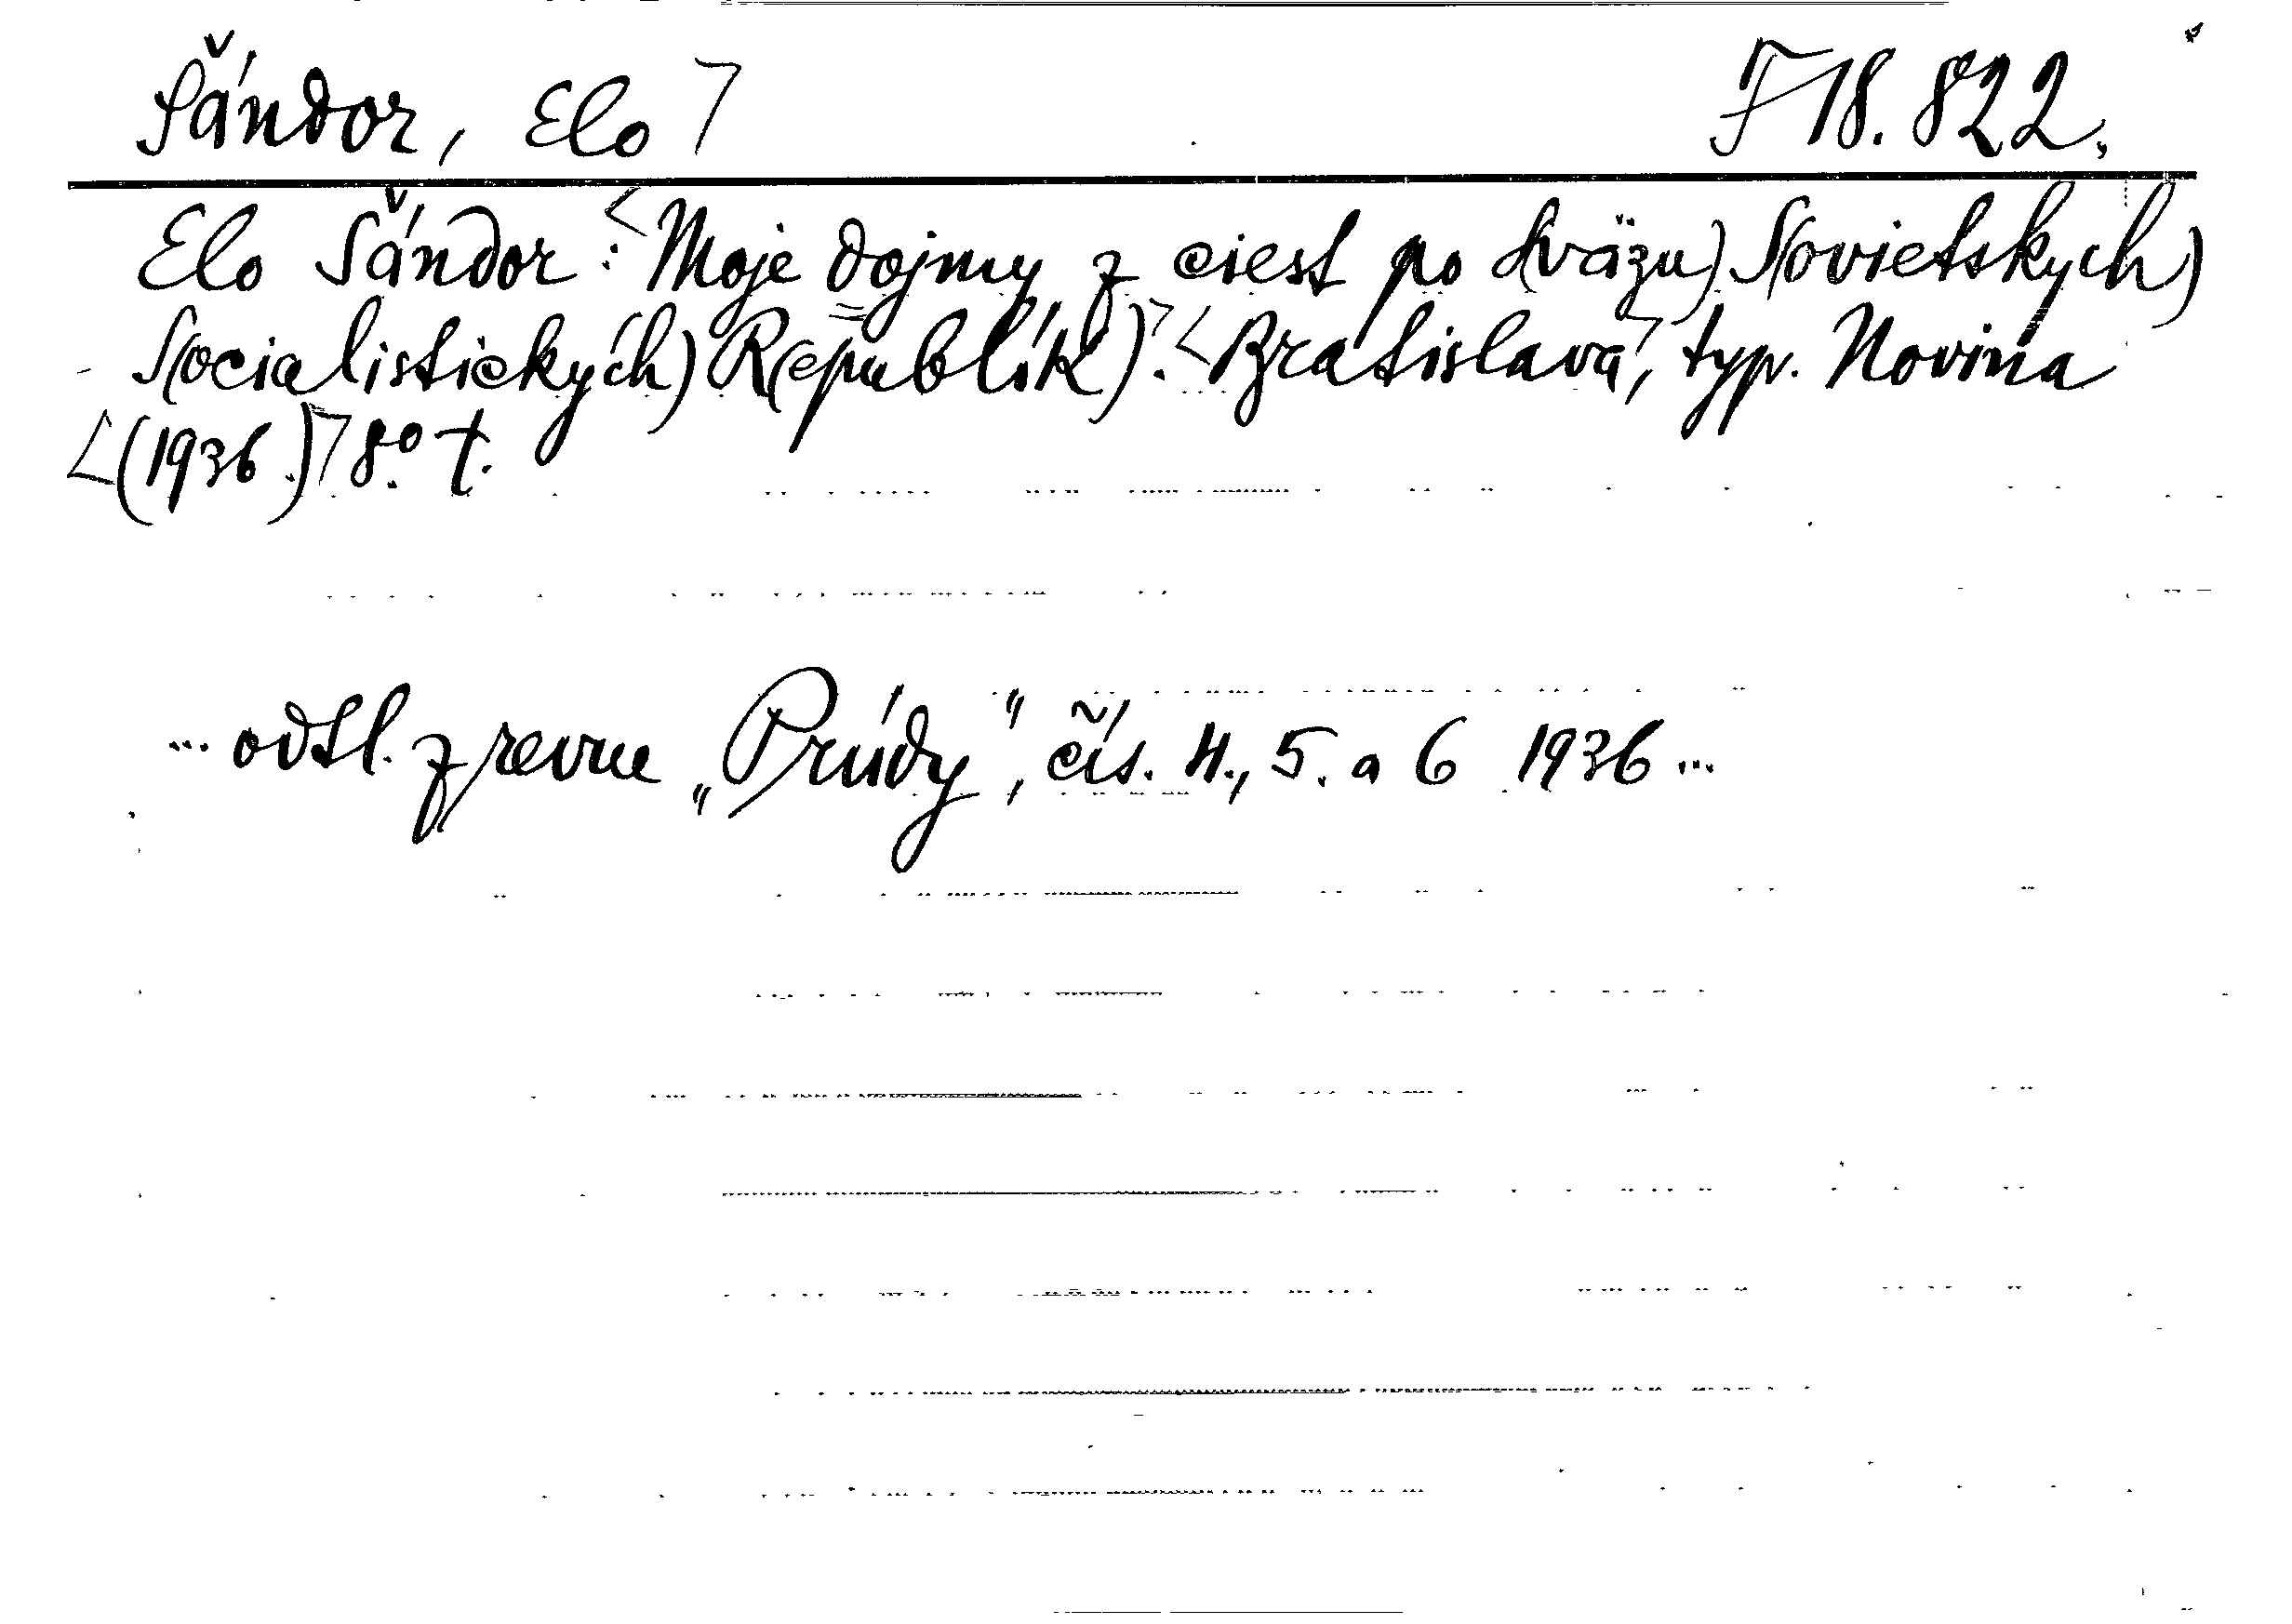 Šándor, Elo ⅂ F 18.822.
Elo Šándor: <Moje dojmy z ciest po S(väzu) S(ovietskych)
S(ocialistických) R(epublík)>. <Bratislava>, typ. Novina
<(1936.)> 8° t.
... odtl. z revue „Prúdy", čís. 4., 5. a 6 1936 ...